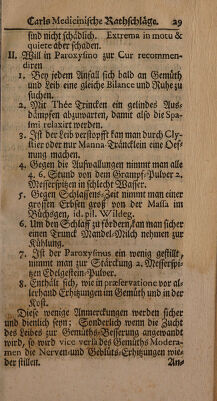 Carls Medicinische Rathschläge. 29
sind nicht schädlich. Extrema in motu &
quiere aber schaden.
II. Will in Paroxysmo zur Cur recommen-
diren
1. Bey jedem Anfall sich bald an Gemüth
und Leib eine gleiche Bilance und Ruhe zu
suchen.
2. Mit Thée Trincken ein gelindes Aus-
dämpffen abzuwarten, damit also die Spa-
smi relaxirt werden.
3. Ist der Leib verstopfft kan man durch Cly-
stier oder nur Manna-Träncklein eine Oef-
nung machen.
4. Gegen die Auffwallungen nimmt man alle
4. 6. Stund von dem Grampf-Pulver 2.
Messerspitzen in schlecht Wasser.
5. Gegen Schlaffens-Zeit nimmt man einer
grossen Erbsen groß von der Massa im
Büchsgen, id. pil. Wildeg.
6. Um den Schlaff zu fördern, kan man sicher
einen Trunck Mandel-Milch nehmen zur
Kühlung.
7. Ist der Paroxysmus ein wenig gestillt,
nimmt man zur Stärckung 2. Messerspi-
tzen Edelgestein-Pulver.
8. Enthält sich, wie in præservatione vor al-
lerhand Erhitzungen im Gemüth und in der
Kost.
Diese wenige Anmerckungen werden sicher
und dienlich seyn; Sonderlich wenn die Zucht
des Leibes zur Gemüths-Besserung angewandt
wird, so wird vice versa des Gemüths Modera-
men die Nerven-und Geblüts-Erhitzungen wie-
der stillen.
An-